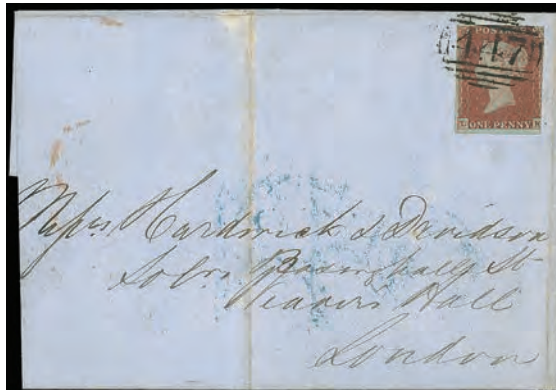 POSTAGE
447
ONE PENNY
Messrs Hardwick & Davidson
Solrs Basinghall St
Weavers Hall
London